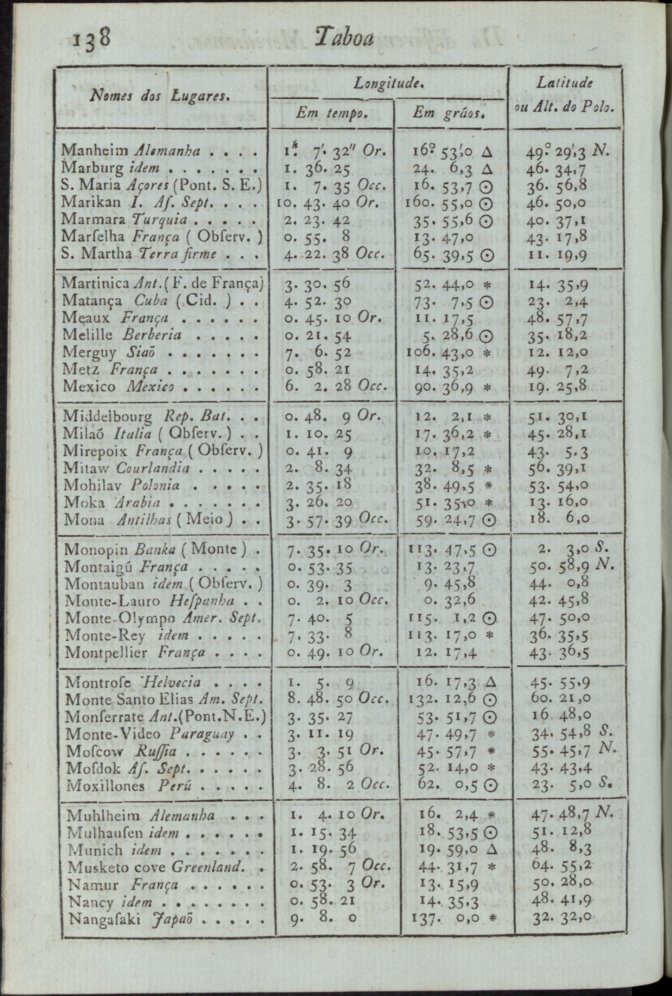 138 Taboa
Nomes dos Lugares. Longitude. Latitude
Em tempo. Em gráos. ou Alt. do Polo.
Manheim Alemanha . . . . 1.h 7.' 32'' Or. 16.° 53,'0 △ 49.° 29,'3 N.
Marburg idem . . . . . . . 1. 36. 25 24. 6,3 △ 46. 34,7
S. Maria Açores (Pont. S. E.) 1. 7. 35 Occ. 16. 53,7 ☉ 36. 56,8
Marikan I. Aſ. Sept. . . . 10. 43. 40 Or. 160. 55,0 ☉ 46. 50,0
Marmara Turquia . . . . . 2. 23. 42 35. 55,6 ☉ 40. 37,1
Marſelha França ( Obſerv. ) 0. 55. 8 13. 47,0 43. 17,8
S. Martha Terra firme . . . 4. 22. 38 Occ. 65. 39,5 ☉ 11. 19,9
Martinica Ant. ( F. de França) 3. 30. 56 52. 44,0 * 14. 35,9
Matança Cuba ( Cid. ) . . 4. 52. 30 73. 7,5 ☉ 23. 2,4
Meaux França . . . . . . 0. 45. 10 Or. 11. 17,5 48. 57,7
Melille Berberia . . . . . 0. 21. 54 5. 28,6 ☉ 35. 18,2
Merguy Siaõ . . . . . . . 7. 6. 52 106. 43,0 * 12. 12,0
Metz França . . . . . . . 0. 58. 21 14. 35,2 49. 7,2
Mexico Mexico . . . . . . 6. 2. 28 Occ. 90. 36,9 * 19. 25,8
Middelbourg Rep. Bat. . . 0. 48. 9 Or. 12. 2,1 * 51. 30,1
Milaõ Italia ( Obſerv. ) . . 1. 10. 25 17. 36,2 * 45. 28,1
Mirepoix França ( Obſerv. ) 0. 41. 9 10. 17,2 43. 5.3
Mitaw Courlandia . . . . . 2. 8. 34 32. 8,5 * 56. 39,1
Mohilav Polonia . . . . . 2. 35. 18 38. 49,5 * 53. 54,0
Moka Arabia . . . . . . . 3. 26. 20 51. 35,0 * 13. 16,0
Mona Antilhas ( Meio ) . . 3. 57. 39 Occ. 59. 24,7 ☉ 18. 6,0
Monopin Banka ( Monte ) . 7. 35. 10 Or. 113. 47,5 ☉ 2. 3,0 S.
Montaigú França . . . . . 0. 53. 35 13. 23,7 50. 58,9 N.
Montauban idem ( Obſerv. ) 0. 39. 3 9. 45,8 44. 0,8
Monte-Lauro Heſpanha . . 0. 2. 10 Occ. 0. 32,6 42. 45,8
Monte-Olympo Amer. Sept. 7. 40. 5 115. 1,2 ☉ 47. 50,0
Monte-Rey idem . . . . . 7. 33. 8 113. 17,0 * 36. 35,5
Montpellier França . . . . 0. 49. 10 Or. 12. 17,4 43. 36,5
Montroſe Helvecia . . . . 1. 5. 9 16. 17,3 △ 45. 55,9
Monte Santo Elias Am. Sept. 8. 48. 50 Occ. 132. 12,6 ☉ 60. 21,0
Monſerrate Ant. (Pont.N.E.) 3. 35. 27 53. 51,7 ☉ 16 48,0
Monte-Video Paraguay . . 3. 11. 19 47. 49,7 * 34. 54,8 S.
Moſcow Ruſſia . . . . . . 3. 3. 51 Or. 45. 57,7 * 55. 45,7 N.
Moſdok Aſ. Sept. . . . . . 3. 28. 56 52. 14,0 * 43. 43,4
Moxillones Perú . . . . . 4. 8. 2 Occ. 62. 0,5 ☉ 23. 5,0 S.
Muhlheim Alemanha . . . 1. 4. 10 Or. 16. 2,4 * 47. 48,7 N.
Mulhauſen idem . . . . . . 1. 15. 34 18. 53,5 ☉ 51. 12,8
Munich idem . . . . . . . 1. 19. 56 19. 59,0 △ 48. 8,3
Musketo cove Greenland. . 2. 58. 7 Occ. 44. 31,7 * 64. 55,2
Namur França . . . . . . 0. 53. 3 Or. 13. 15,9 50. 28,0
Nancy idem . . . . . . . . 0. 58. 21 14. 35,3 48. 41,9
Nangaſaki Japaõ . . . . . 9. 8. 0 137. 0,0 * 32. 32,0